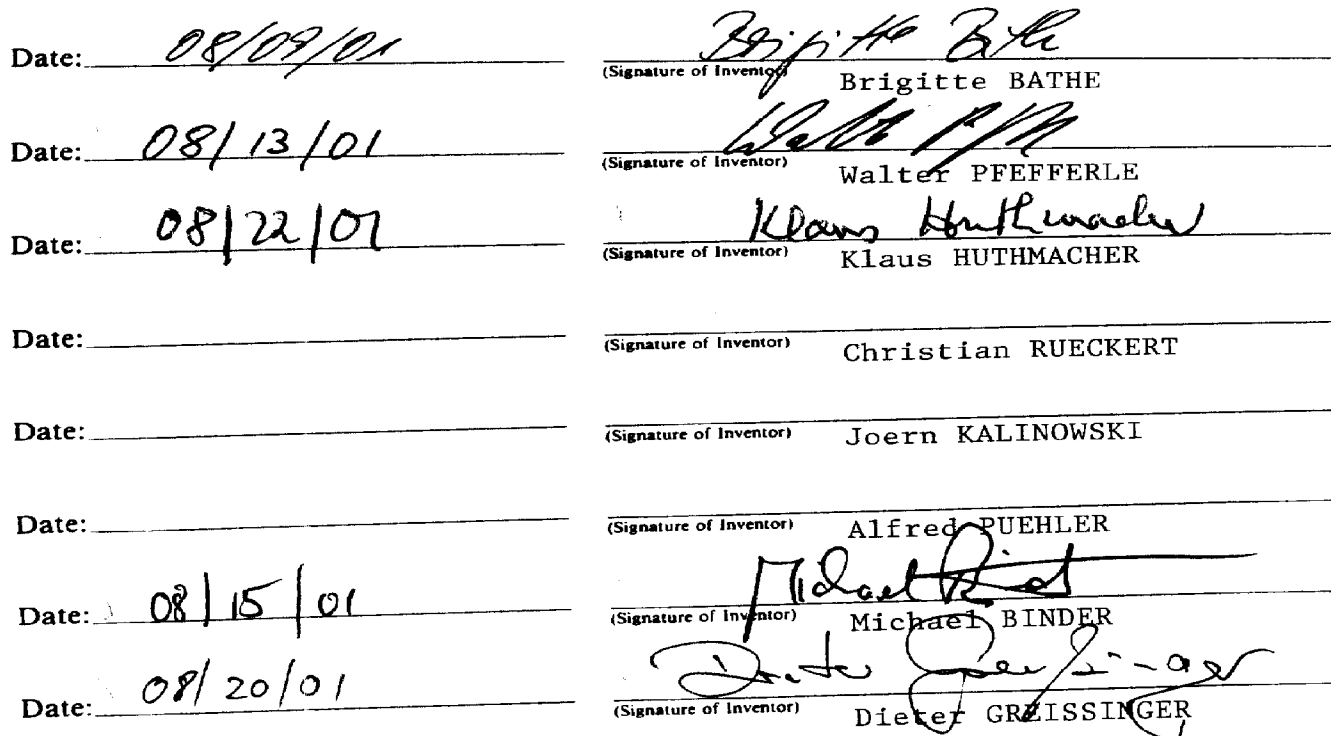 Date: 08/09/01 Brigitte Bathe
(Signature of Inventor) Brigitte BATHE
Date: 08/13/01 Walter Pfefferle
(Signature of Inventor) Walter PFEFFERLE
Date: 08/22/01 Klaus Huthmacher
(Signature of Inventor) Klaus HUTHMACHER
Date:
(Signature of Inventor) Christian RUECKERT
Date:
(Signature of Inventor) Joern KALINOWSKI
Date:
(Signature of Inventor) Alfred PUEHLER
Date: 08/15/01 Michael Binder
(Signature of Inventor) Michael BINDER
Date: 08/20/01 Dieter Greissinger
(Signature of Inventor) Dieter GREISSINGER